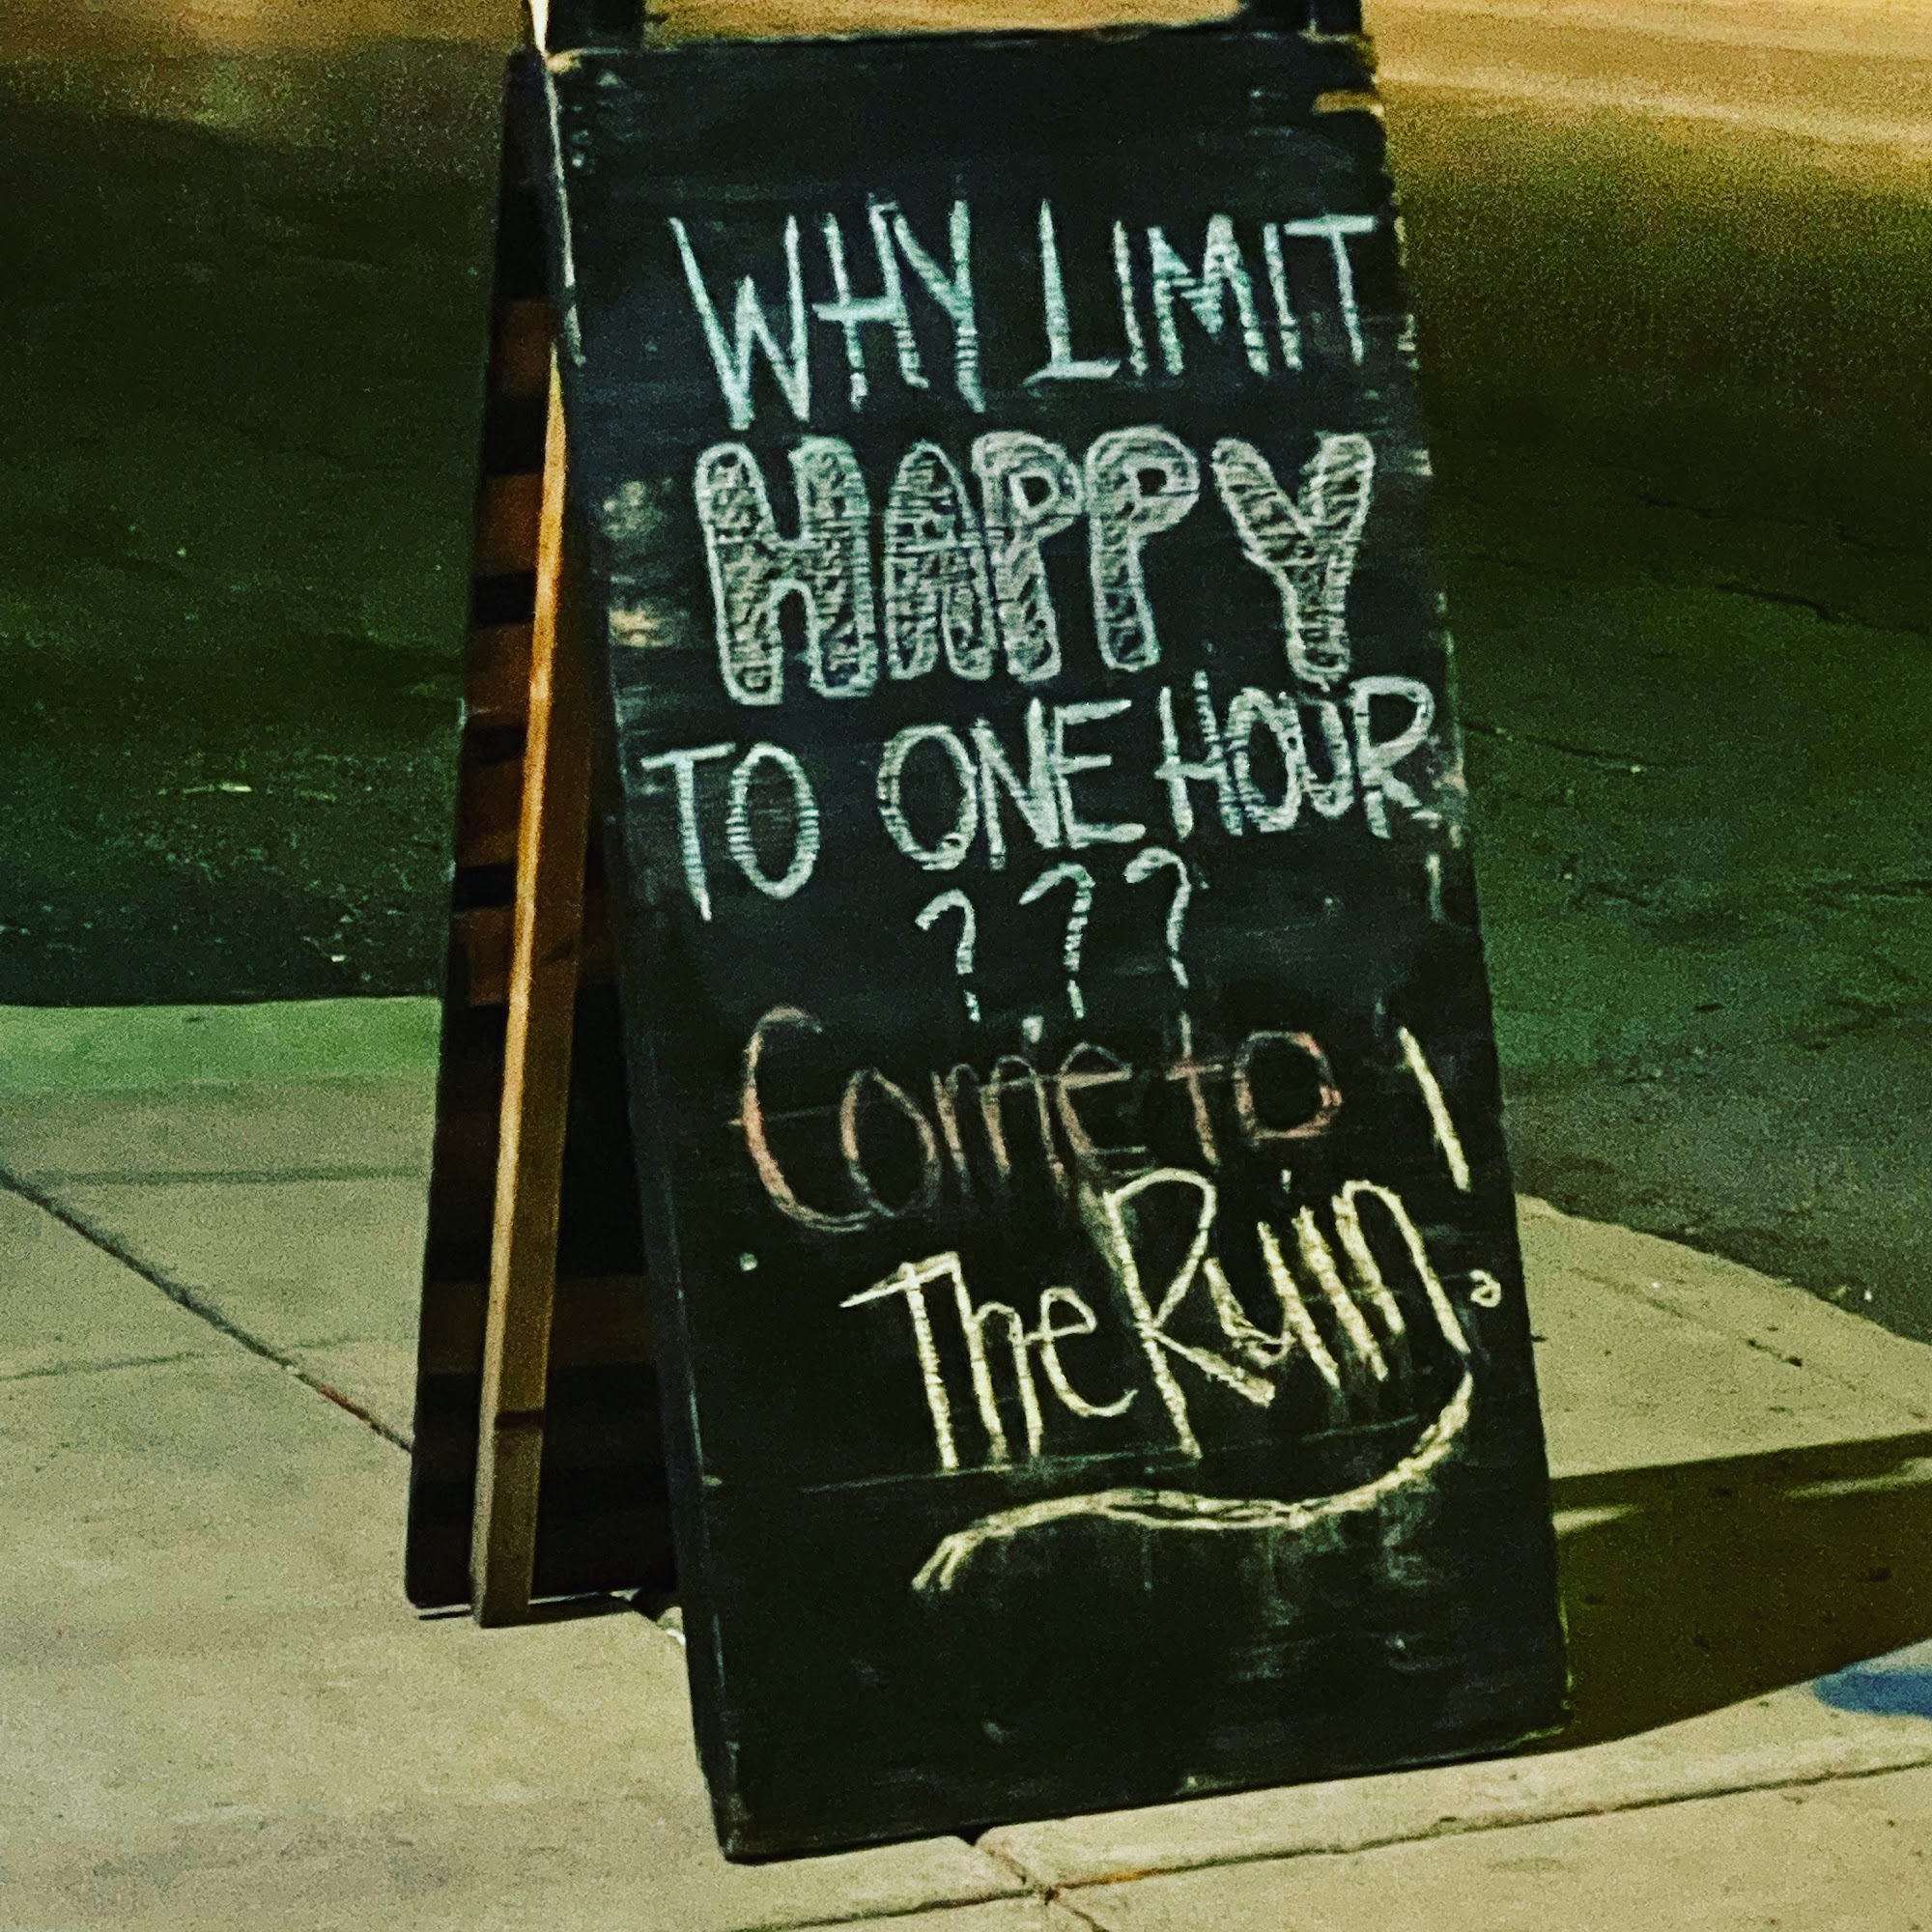 WHY LIMIT
HAPPY
TO ONE HOUR
???
Come to
The Ruin!